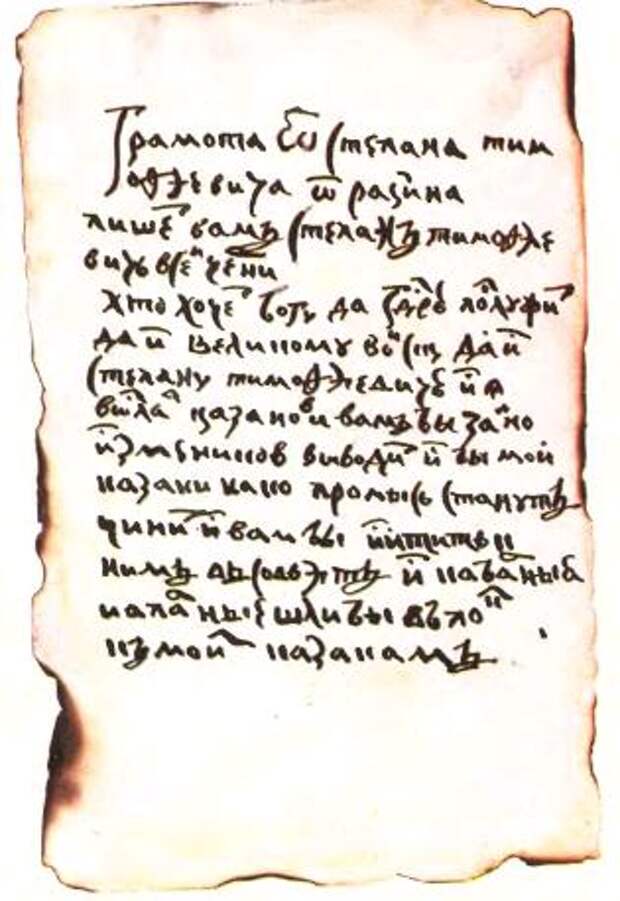 Грамота ѿ Степана тим
оѳѣевича ѿ разина
пишет вамъ Степанъ тимоѳѣе
вичь всеи черни
хто хочет богу да гдрю послужит
да и великому воиску да и
Степану тимоѳѣевичю и я
выслал казаков и вамъ бы заодно
измѣников выводит и бы мои
казаки како промысь станутъ
чинит и вам бы иттить к
нимъ въ совѣтъ и кабалныя
и апалныя шли бы въ полк
къ моим казакамъ